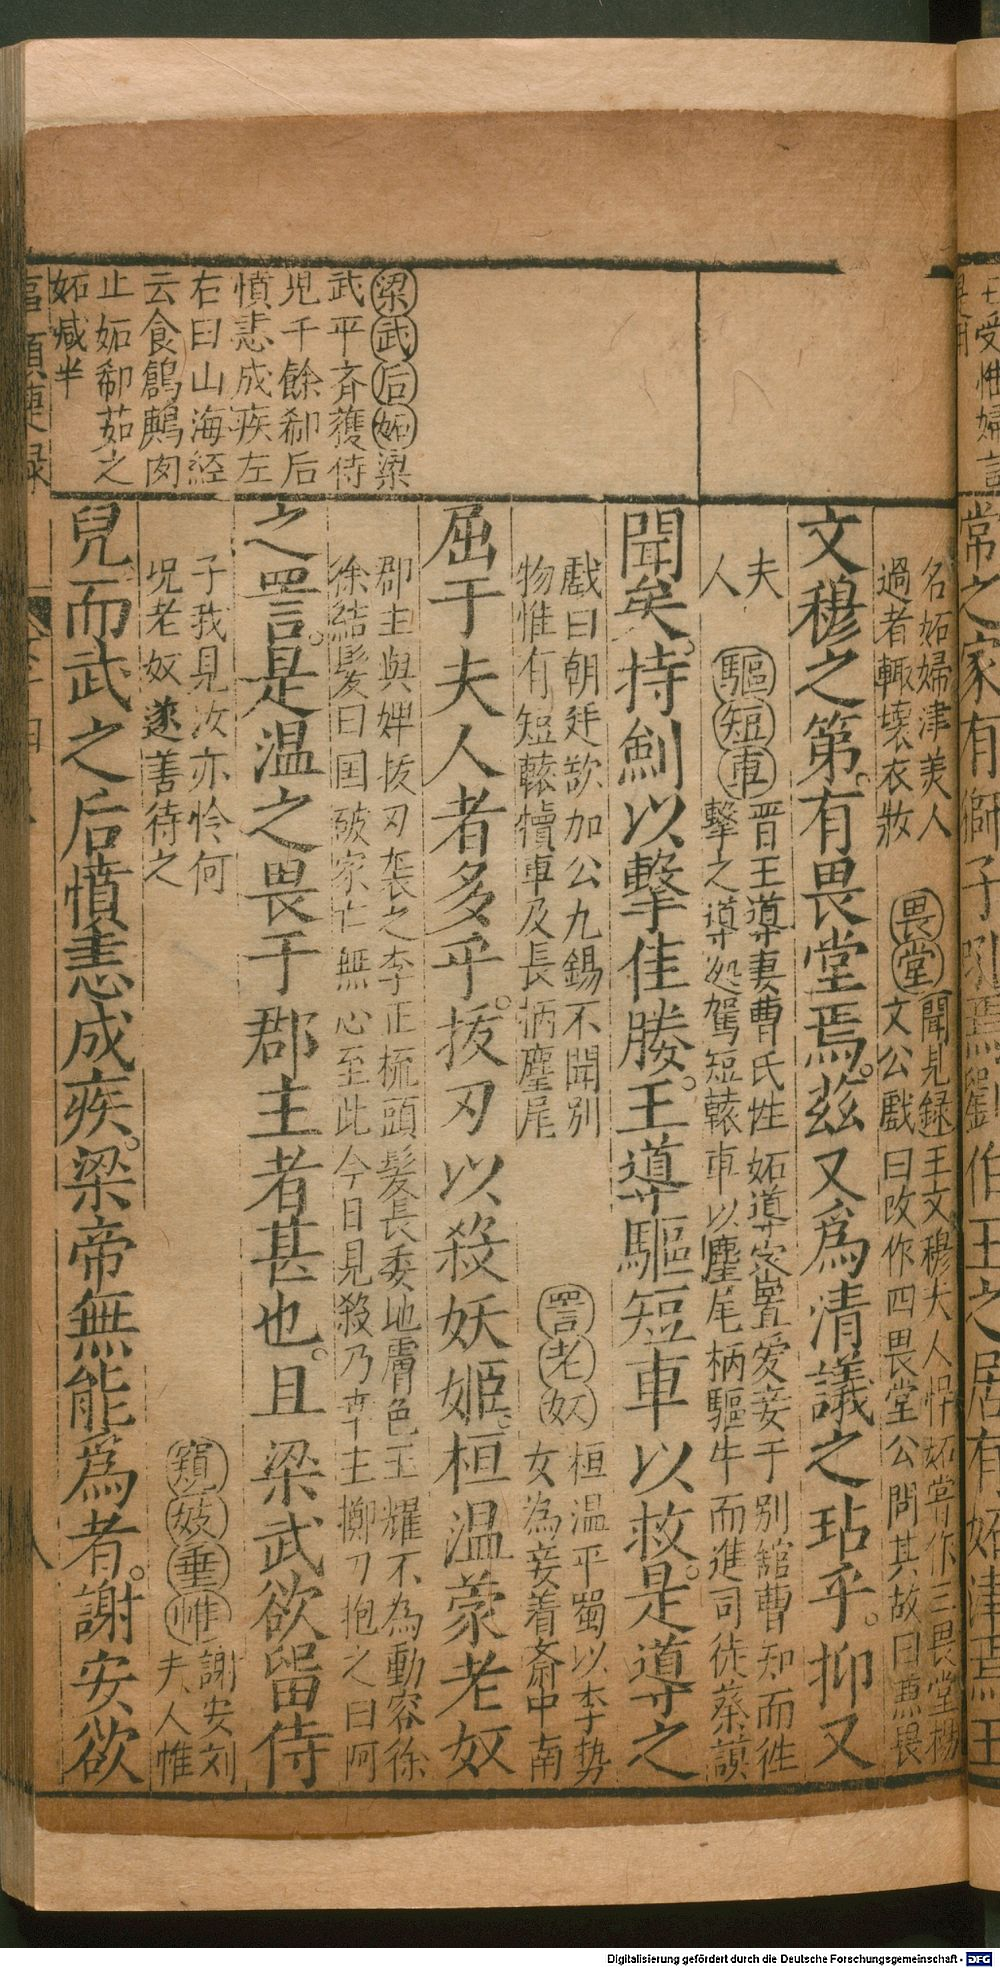 梁武后妬梁
武平齐獲侍
児千餘郗后
憤恚成疾左
右曰山海經
云食鶬鷞肉
止妬郗茹之
妬减半
名妬婦津美人
過者輙壞衣妝
畏堂
聞見録王文穆夫人悍妬嘗作三畏堂楊
文公戲曰改作四畏堂公問其故曰兼畏
夫
人
文穆之第。有畏堂焉。兹又爲清議之玷乎。抑又
驅短車
晋王導妻曹氏性妬導密置爱妾于别舘曹知而徃
擊之導䢖駕短轅車以麈尾柄驅牛而進司徒蔡謨
聞矣。持劍以擊佳媵。王導驅短車以救。是導之
戲曰朝廷欲加公九錫不聞别
物惟有短轅犢車及長柄麈尾
罟老奴
桓温平蜀以李势
女為妾着斎中南
屈于夫人者多乎。拔刃以殺妖姬。桓温蒙老奴
郡主與婢拔刃袭之李正梳頭髮長委地膚色玉耀不為動容徐
徐結髪曰国破家亡無心至此今日見殺乃本主擲刀抱之曰阿
之詈。是温之畏于郡主者甚也。且梁武欲留侍
子我見汝亦怜何
况老奴遂善待之
窺妓垂帷
謝安刘
夫人帷
兒而武之后憤恚成疾。梁帝無能爲者。謝安欲
常之家有獅子
伯玉之居有妬津焉王
Digitalisierung gefördert durch die Deutsche Forschungsgemeinschaft - DFG